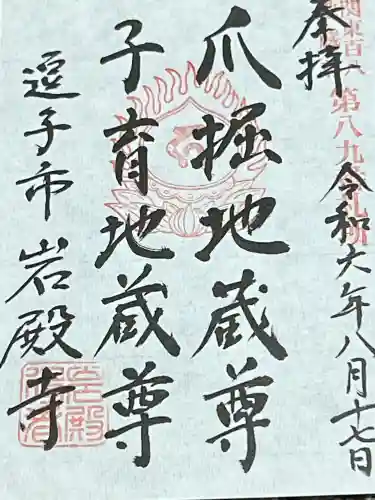 奉拝
令和六年八月十七日
爪掘地蔵尊
子育地蔵尊
逗子市 岩殿寺